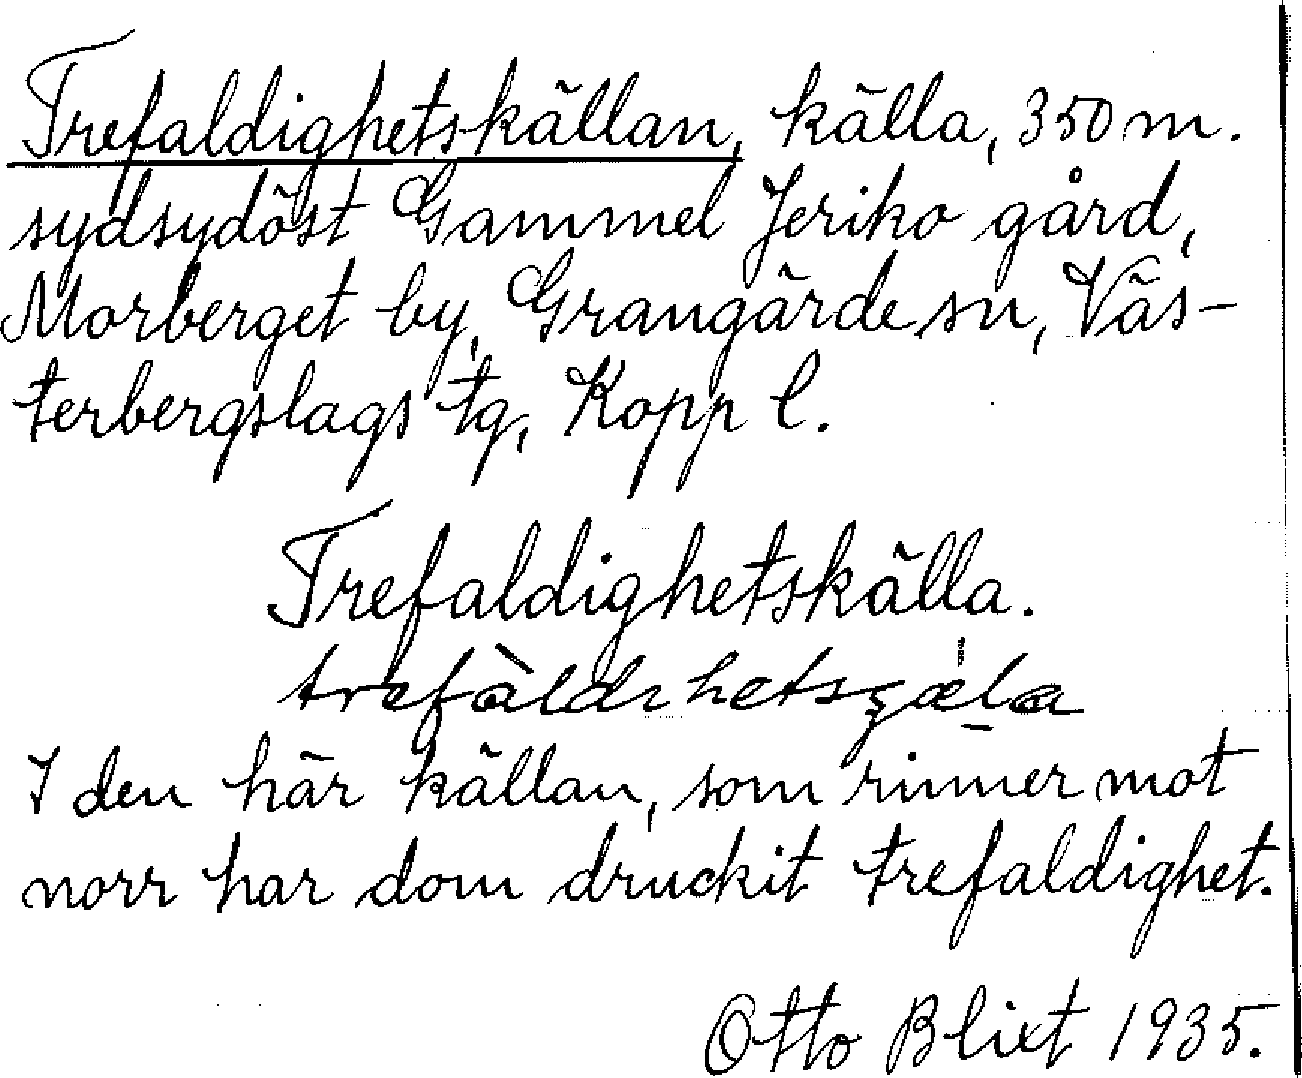 Trefaldighetskällan, källa, 350 m.
sydsydöst Gammel Jeriko gård,
Morberget by, Grangärde sn, Väs-
terbergslags tg, Kopp l.
Trefaldighetskälla.
I den här källan, som rinner mot
norr har dom druckit trefaldighet.
Otto Blixt 1935.